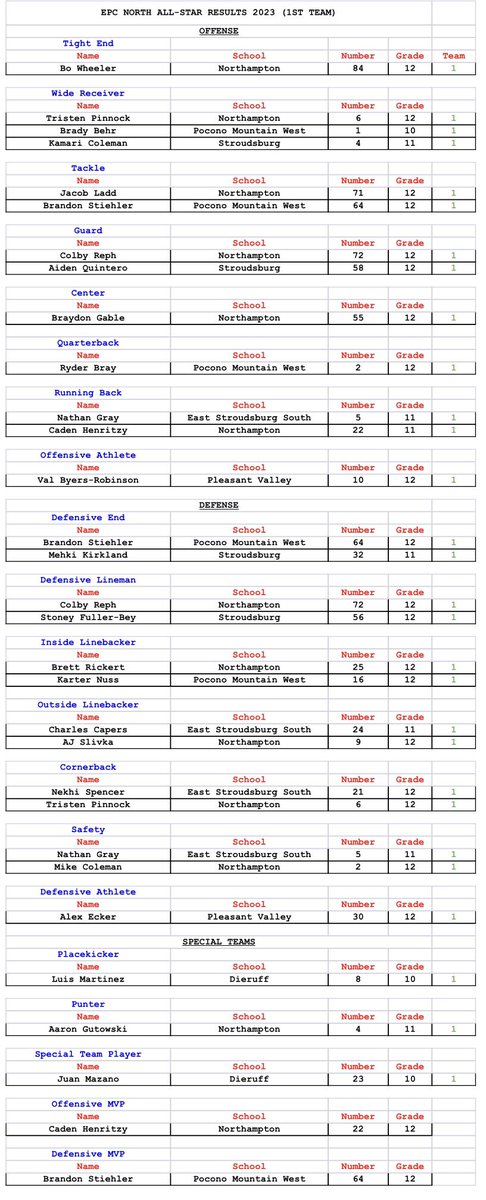 EPC NORTH ALL-STAR RESULTS 2023 (1ST TEAM)
OFFENSE
Tight End
Name School Number Grade Team
Bo Wheeler Northampton 84 12 1
Wide Receiver
Name School Number Grade
Tristen Pinnock Northampton 6 12 1
Brady Behr Pocono Mountain West 1 10 1
Kamari Coleman Stroudsburg 4 11 1
Tackle
Name School Number Grade
Jacob Ladd Northampton 71 12 1
Brandon Stiehler Pocono Mountain West 64 12 1
Guard
Name School Number Grade
Colby Reph Northampton 72 12 1
Aiden Quintero Stroudsburg 58 12 1
Center
Name School Number Grade
Braydon Gable Northampton 55 12 1
Quarterback
Name School Number Grade
Ryder Bray Pocono Mountain West 2 12 1
Running Back
Name School Number Grade
Nathan Gray East Stroudsburg South 5 11 1
Caden Henritzy Northampton 22 11 1
Offensive Athlete
Name School Number Grade
Val Byers-Robinson Pleasant Valley 10 12 1
DEFENSE
Defensive End
Name School Number Grade
Brandon Stiehler Pocono Mountain West 64 12 1
Mehki Kirkland Stroudsburg 32 11 1
Defensive Lineman
Name School Number Grade
Colby Reph Northampton 72 12 1
Stoney Fuller-Bey Stroudsburg 56 12 1
Inside Linebacker
Name School Number Grade
Brett Rickert Northampton 25 12 1
Karter Nuss Pocono Mountain West 16 12 1
Outside Linebacker
Name School Number Grade
Charles Capers East Stroudsburg South 24 11 1
AJ Slivka Northampton 9 12 1
Cornerback
Name School Number Grade
Nekhi Spencer East Stroudsburg South 21 12 1
Tristen Pinnock Northampton 6 12 1
Safety
Name School Number Grade
Nathan Gray East Stroudsburg South 5 11 1
Mike Coleman Northampton 2 12 1
Defensive Athlete
Name School Number Grade
Alex Ecker Pleasant Valley 30 12 1
SPECIAL TEAMS
Placekicker
Name School Number Grade
Luis Martinez Dieruff 8 10 1
Punter
Name School Number Grade
Aaron Gutowski Northampton 4 11 1
Special Team Player
Name School Number Grade
Juan Mazano Dieruff 23 10 1
Offensive MVP
Name School Number Grade
Caden Henritzy Northampton 22 12
Defensive MVP
Name School Number Grade
Brandon Stiehler Pocono Mountain West 64 12